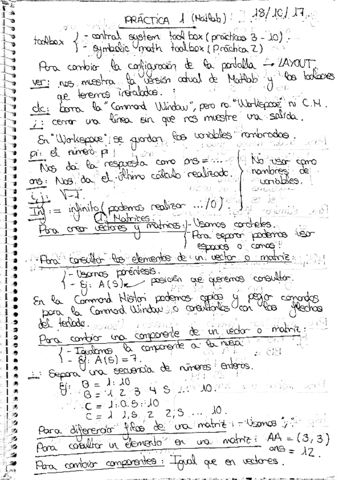 PRÁCTICA 1 (Matlab) 18/10/17
toolbox - control system toolbox (prácticas 3-10).
- symbolic math toolbox (Práctica 2)
Para cambiar la configuración de la pantalla → LAYOUT
ver: nos muestra la versión actual de Matlab y los toolboxes
que tenemos instalados.
clc: borra la "Command Window", pero no "Workspace" ni C.H.
; : cerrar una línea sin que nos muestre una salida.
En "Workspace" se guardan las variables nombradas.
pi: el número pi
Nos da la respuesta como ans = ...
ans: Nos da el último cálculo realizado.
No usar como nombres de variables.
i, j: √-1
Inf: = infinito (podemos realizar .../0).
Matrices:
Para crear vectores y matrices: - Usamos corchetes.
Para separar podemos usar
espacios o comas
Para consultar los elementos de un vector o matriz:
- Usamos paréntesis.
- Ej: A(5) posición que queremos consultar.
En la Command Histori podemos copiar y pegar comandos
para la Command Window o consultarlos con las flechas
del teclado.
Para cambiar una componente de un vector o matriz:
- Igualamos la componente a la nueva
- Ej: A(5) = 7.
: : Separa una secuencia de números enteros.
Ej: B = 1:10
B = 1 2 3 4 5 ... 10.
C = 1:0.5:10
C = 1 1,5 2 2,5 ... 10.
Para diferenciar filas de una matriz: - Usamos ";"
Para consultar un elemento en una matriz: AA = (3,3)
ans = 12.
Para cambiar componentes: Igual que en vectores.